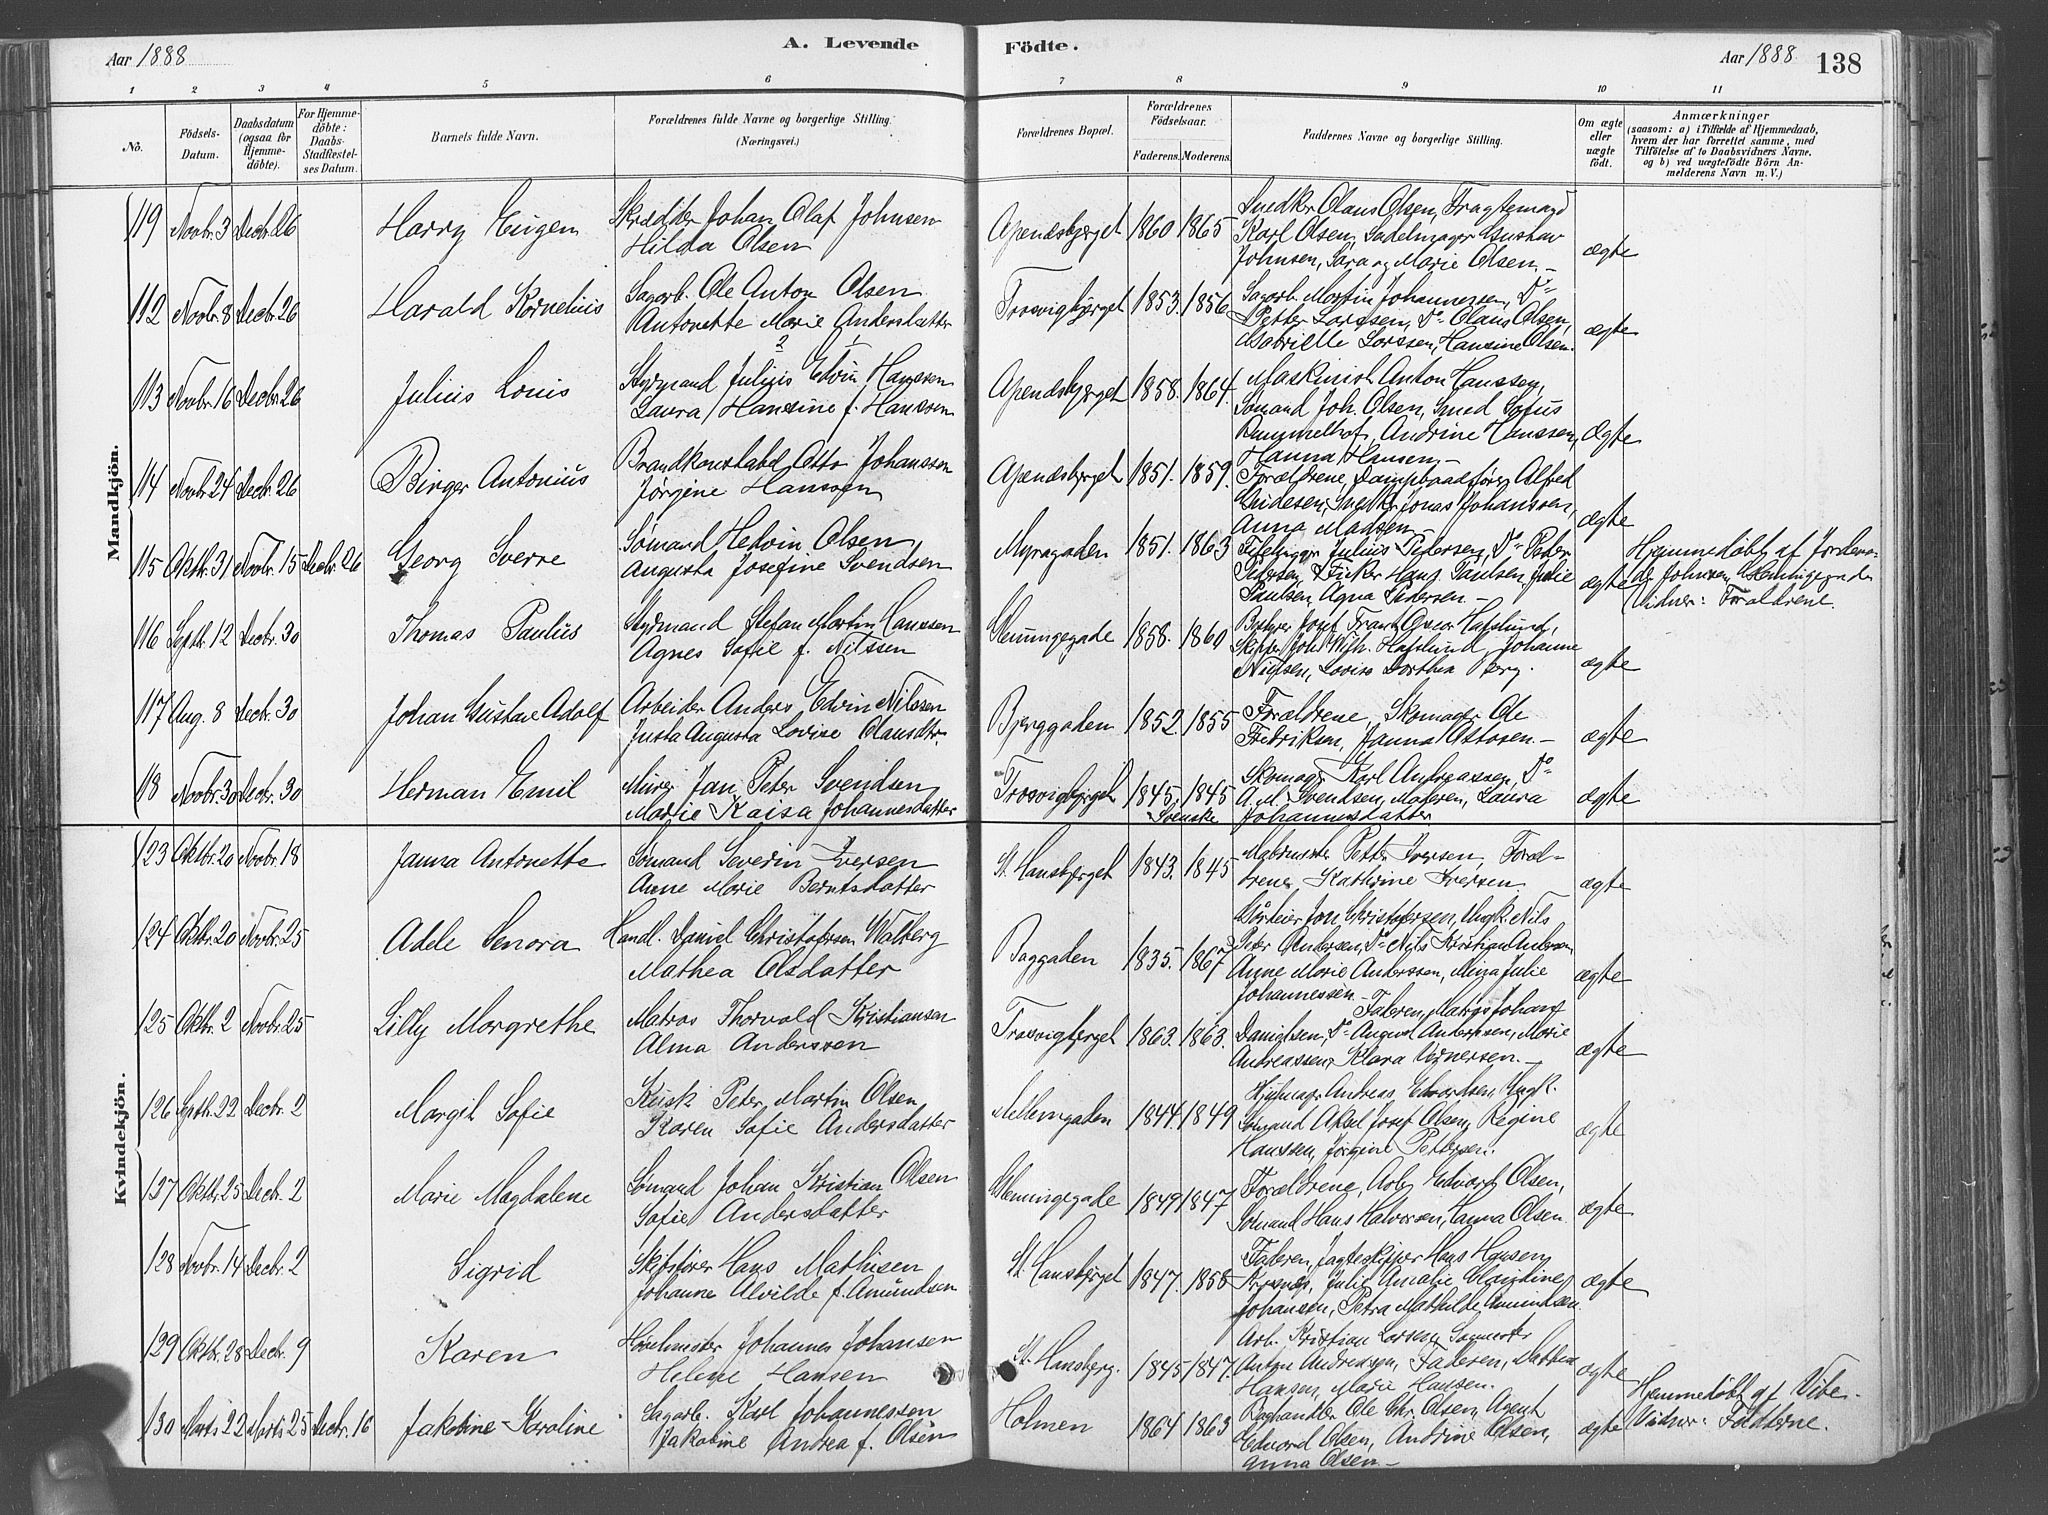 Aar 1888
A. Levende
Födte.
Aar 1888.
138
1 2 3 4 5 6 7 8 9 10 11
No.
Födsels-
Datum.
Daabsdatum
(ogsaa for
Hjemme-
döbte).
For Hjemme-
döbte:
Daabs-
Stadfæstel-
ses Datum.
Barnets fulde Navn.
Forældrenes fulde Navne og borgerlige Stilling.
(Næringsvei.)
Forældrenes Bopæl.
Forældrenes
Födselsaar.
Faderens. Moderens.
Faddernes Navne og borgerlige Stilling.
Om ægte
eller
uægte
födt.
Anmærkninger
(saasom: a) i Tilfælde af Hjemmedaab,
hvem der har forrettet samme, med
Tilföielse af to Daabsvidners Navne,
og b) ved uægtefödte Börn An-
melderens Navn m. V.)
Mandkjön.
119 Novbr. 3 Decbr. 26 Harry Eugen
Skrædder Johan Olaf Johnsen
Hilda Olsen
Apenæsbjerget 1860 1865
Snedker Olaus Olsen, Fragtemand
Karl Olsen, Sadelmager Gustav
Johnsen, Sara og Marie Olsen.-
ægte
112 Novbr. 8 Decbr. 26 Harald Kornelius
Sagarb. Ole Anton Olsen
Antonette Marie Andersdatter
Trosvigbjerget 1853. 1856
Sagarb. Martin Johannessen, Do
Petter Larssen, Do Olaus Olsen,
Gabrielle Larssen, Hansine Olsen.
ægte
113 Novbr. 16 Decbr. 26 Julius Louis
2 1
Styrmand Julius Edvin Hanssen
Laura Hansine f. Hanssen
Apenæsbjerget 1858. 1864.
Maskinist Anton Hanssen,
Sømand Joh. Olsen, Smed Sofus
Rummelhof, Andrine Hanssen,
Hanna Hansen.-
Ægte
114 Novbr. 24 Decbr. 26 Birger Antonius
Brandkonstabel Otto Johanssen
Jørgine Hanssen
Apenæsbjerget 1851. 1859.
Forældrene, Dampbaadfører Alfred
Gudesen, Snedker Jonas Johanssen,
Anna Madsen-
ægte
115 Oktbr. 31 Novbr. 15 Decbr. 26 Georg Sverre
Sømand Hedvin Olsen,
Augusta Josefine Svendsen
Myragaden 1851. 1863
Julius Pedersen, Do Peter
Pedersen, Hans Paulsen, Julie
Paulsen, Agna Pedersen.-
ægte
Hjemmedøbt af Jordemo-
der Johnsen,
Vidner: Forældrene.
116 Septb. 12 Decbr. 30 Thomas Paulus
Styrmand Stefan Martin Hanssen
Agnes Sofie f. Nilssen
1858. 1860
Josef Frantz Oscar Hafslund,
Skipper Joh. Wilh. Hafslund, Johanne
Nielsen, Lovise Dorthea Berg.
ægte
117 Aug. 8 Decbr. 30 Johan Gustav Adolf
Arbeider Anders Edvin Nilssen
Justa Augusta Lovise Olausdtr.
Bjerggaden 1852 1855
Forældrene, Skomager Ole
Fredriksen, Janna Ottosen.-
ægte
118 Novbr. 30 Decbr. 30 Herman Emil
Murer Jan Peter Svendsen
Marie Kaisa Johannesdatter
Trosvigbjerget 1845. 1845
Svenske
Skomager Karl Andreassen, Do
A. M. Svendsen, Moderen, Laura
Johannesdatter
ægte
Kvindekjön.
123 Oktbr. 20 Novbr. 18 Janna Antonette
Sømand Severin Iversen
Anne Marie Berntsdatter
St. Hansbjerget 1843. 1845
Petter Iversen, Foræl-
drene, Kathrine Iversen.
ægte
124 Oktbr. 20 Novbr. 25 Adele Senora
Handl. Daniel Christofersen Walberg
Mathea Olsdatter
Baggaden 1835. 1867
Gårdeier Jon Christofersen, Ungk. Nils
Peter Andersen, Do Nils Kristian Andersen,
Anne Marie Anderssen, Mina Julie
Johannessen.-
ægte
125 Oktbr. 2 Novbr. 25 Lilly Margrethe
Matros Thorvald Kristiansen
Alma Anderssen
Trosvigbjerget 1863. 1863.
Faderen, Matros Johan
Danielsen, Do August Anderssen, Marie
Andreassen, Klara Vernersen.-
ægte
126 Septb. 22 Decbr. 2 Margit Sofie
Kusk Peter Martin Olsen,
Karen Sofie Andersdatter
Mellemgaden 1844. 1849
Hjulmager Andreas Edvardsen, Ungk.
Sømand Aksel Josef Olsen, Regine
Hanssen, Jørgine Pedersen.
ægte
127 Oktbr. 25 Decbr. 2 Marie Magdalene
Sømand Johan Kristian Olsen
Sofie Andersdatter
1849 1847
Forældrene, Arb. Edvard Olsen,
Sømand Hans Halvorsen, Hanna Olsen.
ægte
128 Novbr. 14 Decbr. 2 Sigrid
Skibsfører Hans Mathisen
Johanne Alvilde f. Amundsen
St. Hansbjerget 1847. 1858
Faderen, Jagteskipper Hans Hansen
Julie Amalie Claudine
Johansen, Petra Mathilde Amundsen.
ægte
129 Oktbr. 28 Decbr. 9 Karen
Johannes Johansen
Helene Hansen
St. Hansberg. 1845 1847.
Arb. Kristian Larsen,
Anton Andreasen, Faderen,
Hansen, Marie Hansen.
ægte
130 Marts 22 Marts 25 Decbr. 16 Jakobine Karoline
Sagarb. Karl Johannessen
Jakobine Andrea f. Olsen
Holmen 1864 1863
Ole Chr. Olsen, Agent
Edvard Olsen, Andrine Olsen,
Anna Olsen.-
ægte
Hjemmedøbt af Vibe.
Vidner: Fadderne.